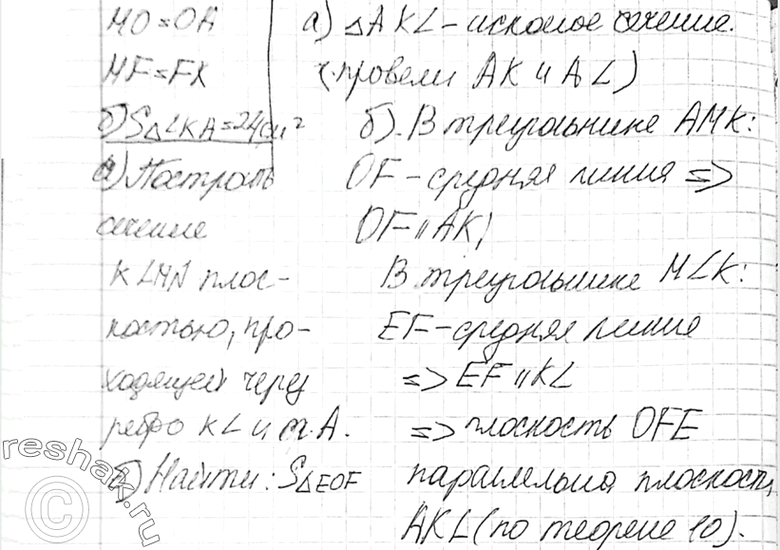 MO=OA
MF=FK
б) S△LKA=24см²
а) Построить
сечение
KLMN плос-
костью, про-
ходящей через
ребро KL и т.A.
б) Найти: S△EOF
а) △AKL - искомое сечение.
(провели AK и AL)
б). В треугольнике AMK:
OF - средняя линия =>
OF || AK;
В треугольнике MLK:
EF - средняя линия
=> EF || KL
=> плоскость OFE
параллельна плоскости
AKL (по теореме 10).
reshak.ru
©